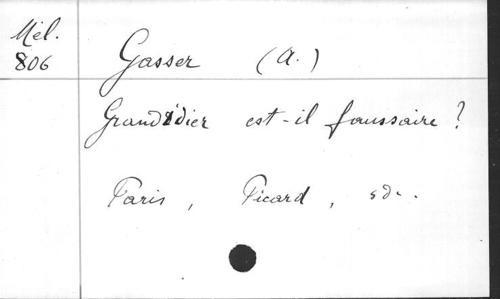 Mél.
806
Gasser (A.)
Grandidier est-il faussaire ?
Paris, Picard, sd.